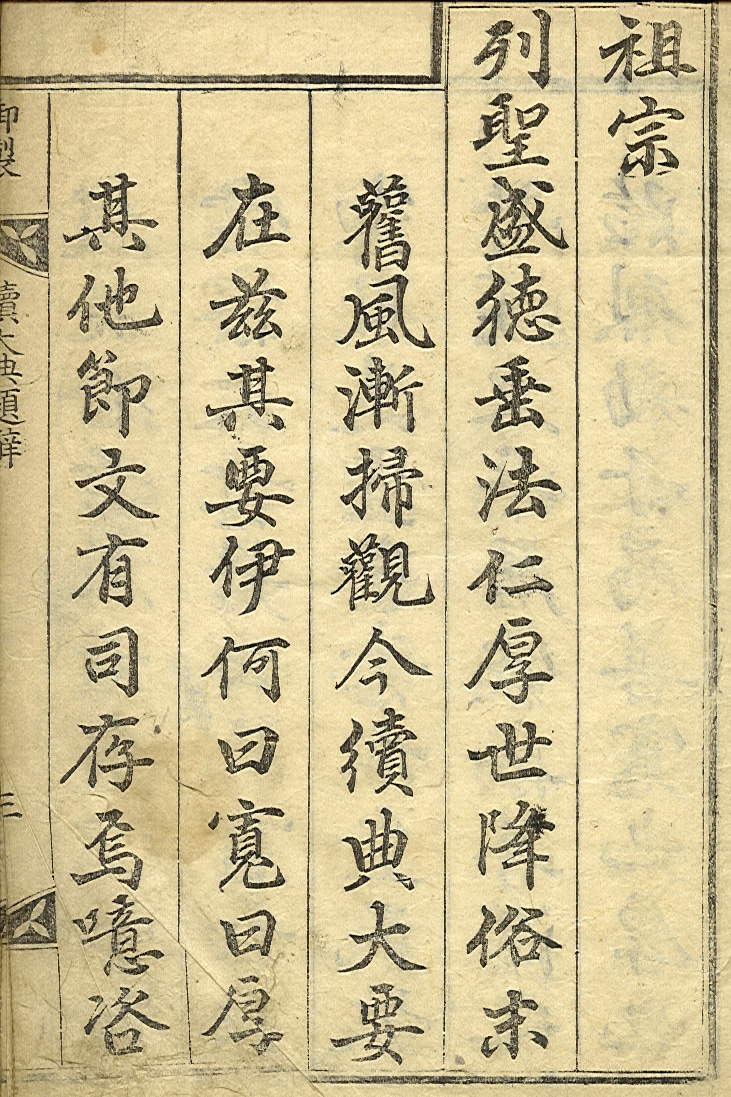 祖宗
列聖盛徳垂法仁厚世降俗末
舊風漸掃觀今續典大要
在兹其要伊何曰寬曰厚
其他節文有司存焉噫咨
御製
續大典題辭
三